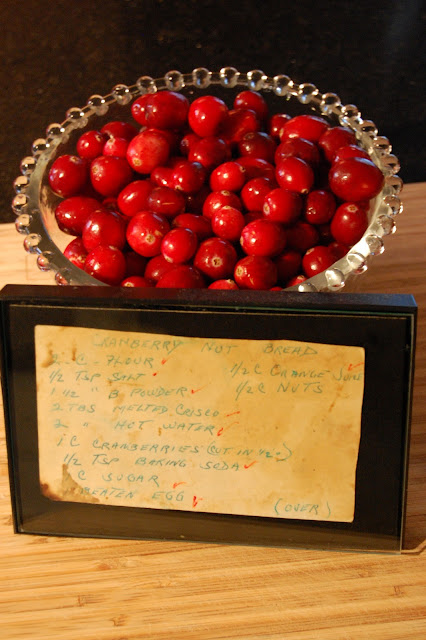 CRANBERRY NUT BREAD
2 C FLOUR
1/2 TSP SALT
1 1/2 " B POWDER
2 TBS MELTED CRISCO
2 " HOT WATER
1 C CRANBERRIES (CUT IN 1/2)
1/2 TSP BAKING SODA
C SUGAR
BEATEN EGG
1/2 C ORANGE
1/2 C NUTS
(OVER)